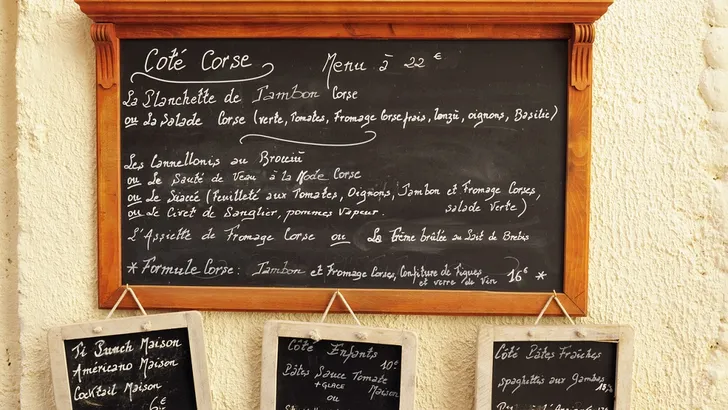 Coté Corse
Menu à 22 €
La Planchette de Jambon Corse
ou La Salade Corse (verte, Tomates, Fromage Corse frais, Lonzù, oignons, Basilic)
Les Cannellonis au Brocciù
ou Le Sauté de Veau à la Mode Corse
ou Le Sciacé (feuilleté aux Tomates, Oignons, Jambon et Fromage Corses,
salade verte)
ou Le Civet de Sanglier, pommes vapeur.
L'Assiette de Fromage Corse ou La Crème brûlée au Lait de Brebis
* Formule Corse : Jambon et Fromage Corses, Confiture de Figues
et verre de Vin 16€ *
Ti Punch Maison
Américano Maison
Cocktail Maison
6€
Côté Enfants
10€
Pâtes Sauce Tomate
+ GLACE Maison
ou
Côté Pâtes Fraîches
spaghettis aux Gambas